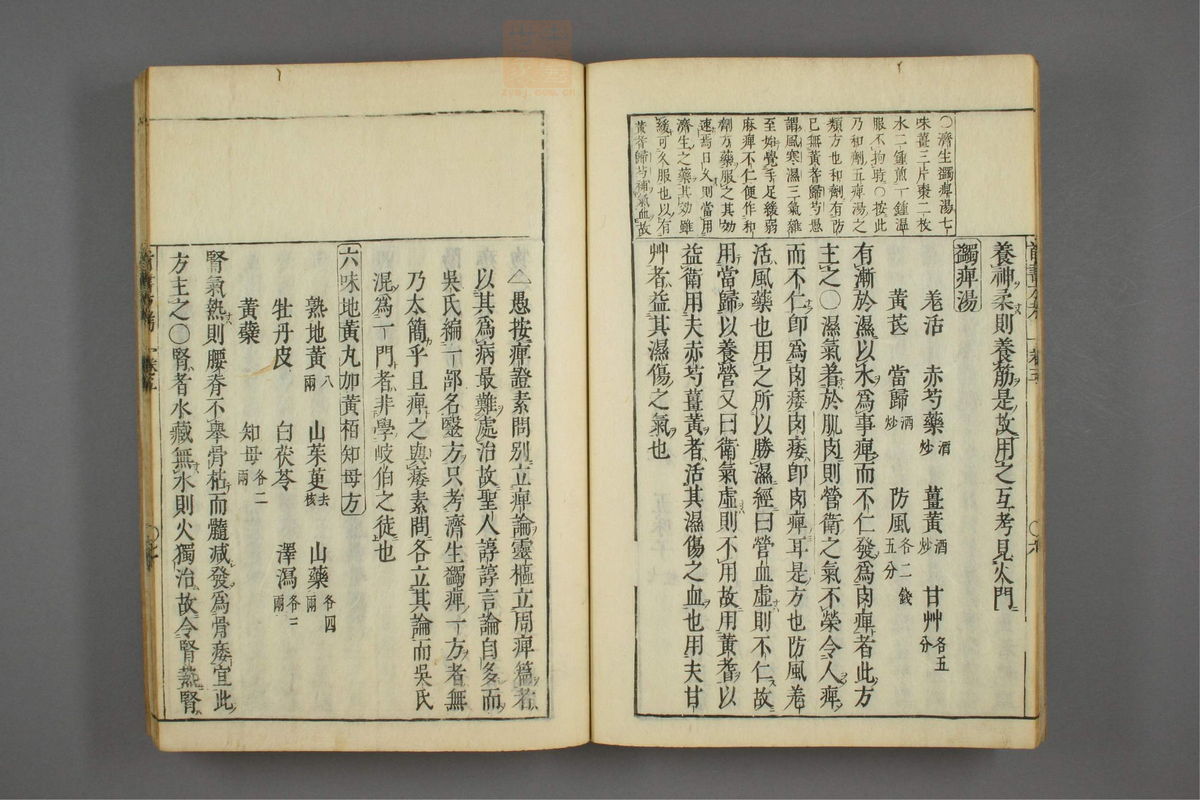 ○濟生蠲痺湯七
味薑三片棗二枚
水二鍾煎一鍾溫
服不拘時○按此
乃和劑五痺湯之
類方也和劑有防
已無黃耆歸芍愚
謂風寒濕三氣雜
至始覺手足緩弱
麻痺不仁便作和
劑方藥服之其効
速焉日久則當用
濟生之藥其効雖
緩可久服也以有
黃耆歸芍補氣血故
養神柔則養筋是故用之互考見火門
蠲痺湯
羗活 赤芍藥酒炒 薑黃酒炒 甘艸各五分
黃芪 當歸酒炒 防風各二錢五分
有漸於濕以水爲事痺而不仁發爲肉痺者此方
主之○濕氣著於肌肉則營衛之氣不榮令人痺
而不仁卽爲肉痿肉痿卽肉痺耳是方也防風羗
活風藥也用之所以勝濕經曰營血虛則不仁故
用當歸以養營又曰衛氣虛則不用故用黃耆以
益衛用夫赤芍薑黃者活其濕傷之血也用夫甘
艸者益其濕傷之氣也
△愚按痺證素問別立痺論靈樞立周痺篇者
以其爲病最難處治故聖人諄諄言論自多而
吳氏編一部名毉方只考濟生蠲痺一方者無
乃太簡乎且痺之與痿素問各立其論而吳氏
混爲一門者非學岐伯之徒也
六味地黃丸加黃栢知母方
熟地黃八兩 山茱萸去核 山藥各四兩
牡丹皮 白茯苓 澤瀉各三兩
黃蘗 知母各二兩
腎氣熱則腰脊不舉骨枯而髓减發爲骨痿宜此
方主之○腎者水藏無水則火獨治故令腎熱腎